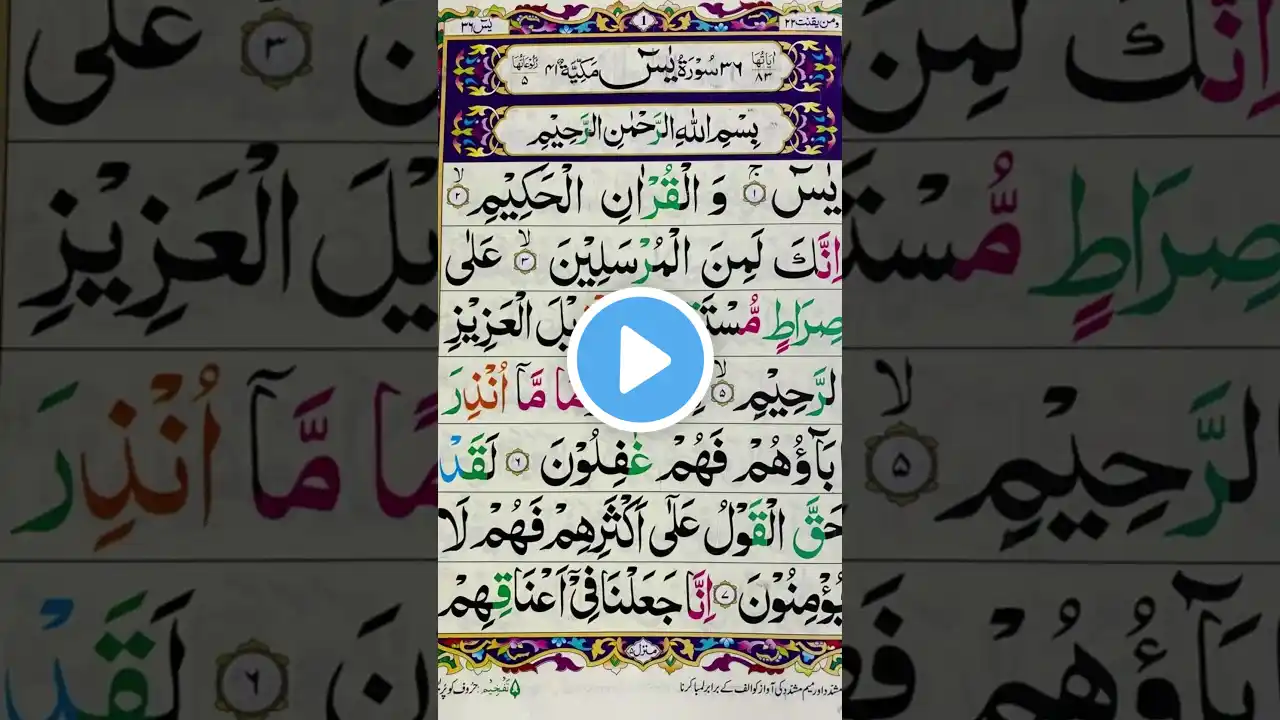 ومن یقنت ۲۲
1
یٰسٓ ۳۶
اٰیَاتُهَا ۸۳
۳۶ سُوْرَةُ یٰسٓ مَكِّیَّةٌ ۴۱
رُكُوْعَاتُهَا ۵
بِسْمِ اللّٰهِ الرَّحْمٰنِ الرَّحِیْمِ
یٰسٓ ۚ ۱ وَ الْقُرْاٰنِ الْحَكِیْمِ ۙ ۲
اِنَّكَ لَمِنَ الْمُرْسَلِیْنَ ۙ ۳ عَلٰی
صِرَاطٍ مُّسْتَقِ یْلَ الْعَزِیْزِ
الرَّحِیْمِ ۙ ۵ مَّاۤ اُنْذِرَ
بَآؤُهُمْ فَهُمْ غٰفِلُوْنَ ۶ لَقَدْ
حَقَّ الْقَوْلُ عَلٰۤی اَكْثَرِهِمْ فَهُمْ لَا
یُؤْمِنُوْنَ ۷ اِنَّا جَعَلْنَا فِیْۤ اَعْنَاقِهِمْ
منزل ۵
مشدّد اور میم مشدّد کی آواز کو الف کے برابر لمبا کرنا
۵ تَفْخِیْم: حروف کو پُر